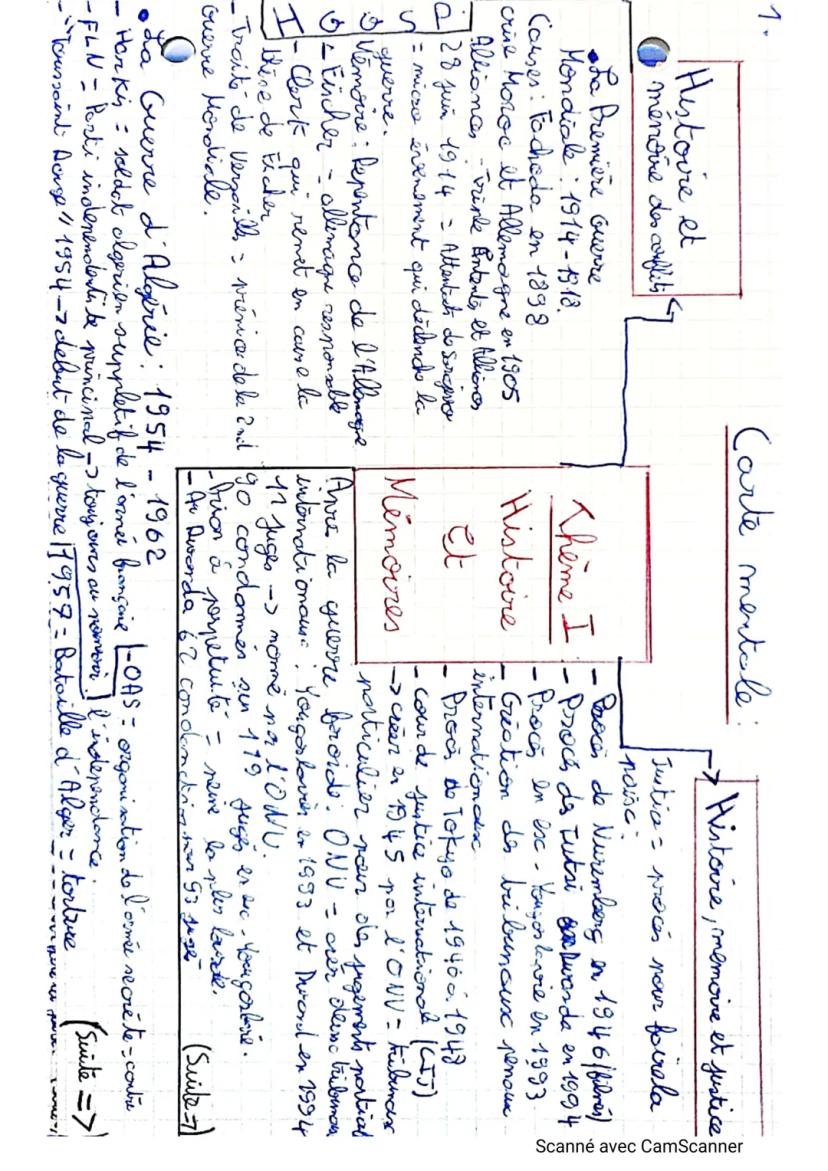 1.
Carte mentale :
Histoire et
mémoire des conflits
• La Première Guerre
Mondiale : 1914-1918.
Causes : Fachoda en 1898
crise Maroc et Allemagne en 1905
Alliances - Triple Entente et Alliance
28 juin 1914 = Attentat de Sarajevo
= micro évènement qui déclenche la
guerre.
Mémoire : Repentance de l'Allemagne
- Fischer = allemagne responsable
- Clark qui remet en cause la
thèse de Fischer
- Traité de Versailles = prémice de la 2nd
Guerre Mondiale.
Thème I
Histoire
Et
Mémoires
Histoire, mémoire et justice
Justice = procès pour faire la
paix :
- Procès de Nuremberg en 1946 (filmés)
- Procès des Tutsi au Rwanda en 1994
- Procès en ex-Yougoslavie en 1993
- Création des tribunaux penaux
internationaux
- Procès de Tokyo de 1946 à 1948
- cour de justice internationale (CIJ)
→ créer en 1945 par l'ONU = tribunaux
particulier pour des jugements partial
Après la guerre froide : ONU = créer deux tribunaux
internationaux : Yougoslavie en 1993 et Rwand en 1994
11 juges → nomé par l'ONU.
90 condamnés sur 119 jugés en ex-Yougoslavie.
- Prison à perpetuité = peine la plus lourde.
- Au Rwanda 62 condanction sur 93 jugé
(Suite →)
• La Guerre d'Algérie : 1954 - 1962
- Harkis = soldat algerien suppletif de l'armée française
- OAS = organisation de l'armée secrète = contre
l'independance.
- FLN = Parti independentiste principal → toujours au pouvoir.
- "Toussaint Rouge" 1954 → debut de la guerre
1957 = Bataille d'Alger = torture
(Suite ⇒)
Scanné avec CamScanner